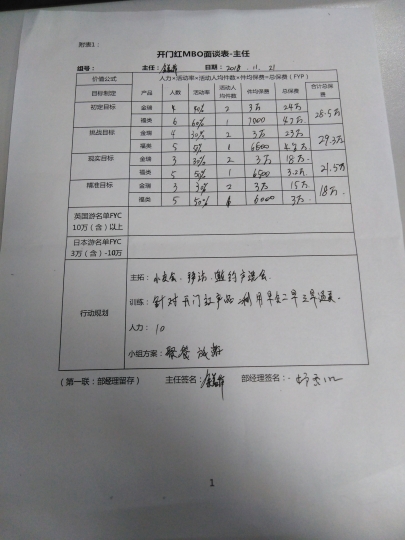 附表1：
开门红MBO面谈表-主任
组号： 主任： 日期：2018.11.21
价值公式 人力×活动率×活动人均件数×件均保费=总保费（FYP）
目标制定 产品 人数 活动率 活动人均件数 件均保费 总保费 合计总保费
初定目标 金瑞 4 2 3万 24万 28.5万
福类 6 60% 1 7000
挑战目标 金瑞 4 30% 2 3万 23万 29.3万
福类 5 1 6500
现实目标 金瑞 3 30% 2 3万 18万 21.5万
福类 5 50% 1 6500 3.2万
精准目标 金瑞 3 2 3万 15万 18万
福类 5 50% 6000 3万
英国游名单FYC
10万（含）以上
日本游名单FYC
3万（含）-10万
行动规划
主拓：
训练：针对开门红产品
人力：10
小组方案：聚餐
（第一联：部经理留存） 主任签名： 部经理签名：
1